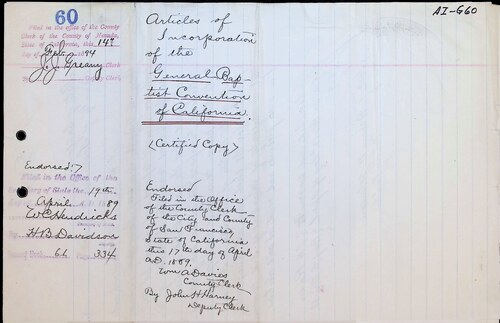 60
Filed in the office of the County
Clerk of the County of Nevada,
State of California, this 14th
day of 1894
J. J. Greany
Clerk
By Deputy Clerk
Endorsed:
Filed in the Office of the
Secretary of State the 19th
day of April 89
W C Hendricks
H B Davidson
61 334
Articles of
Incorporation
of the
General Bap-
tist Convention
of California.
(Certified Copy)
Endorsed
Filed in the Office
of the County Clerk
of the City and County
of San Francisco,
State of California
this 17th day of April
A.D. 1889.
Wm A Davies
County Clerk
By John H Harney
Deputy Clerk
AI-G60